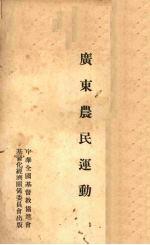 廣東農民運動
中華全國基督教協進會
基督化經濟關係委員會出版